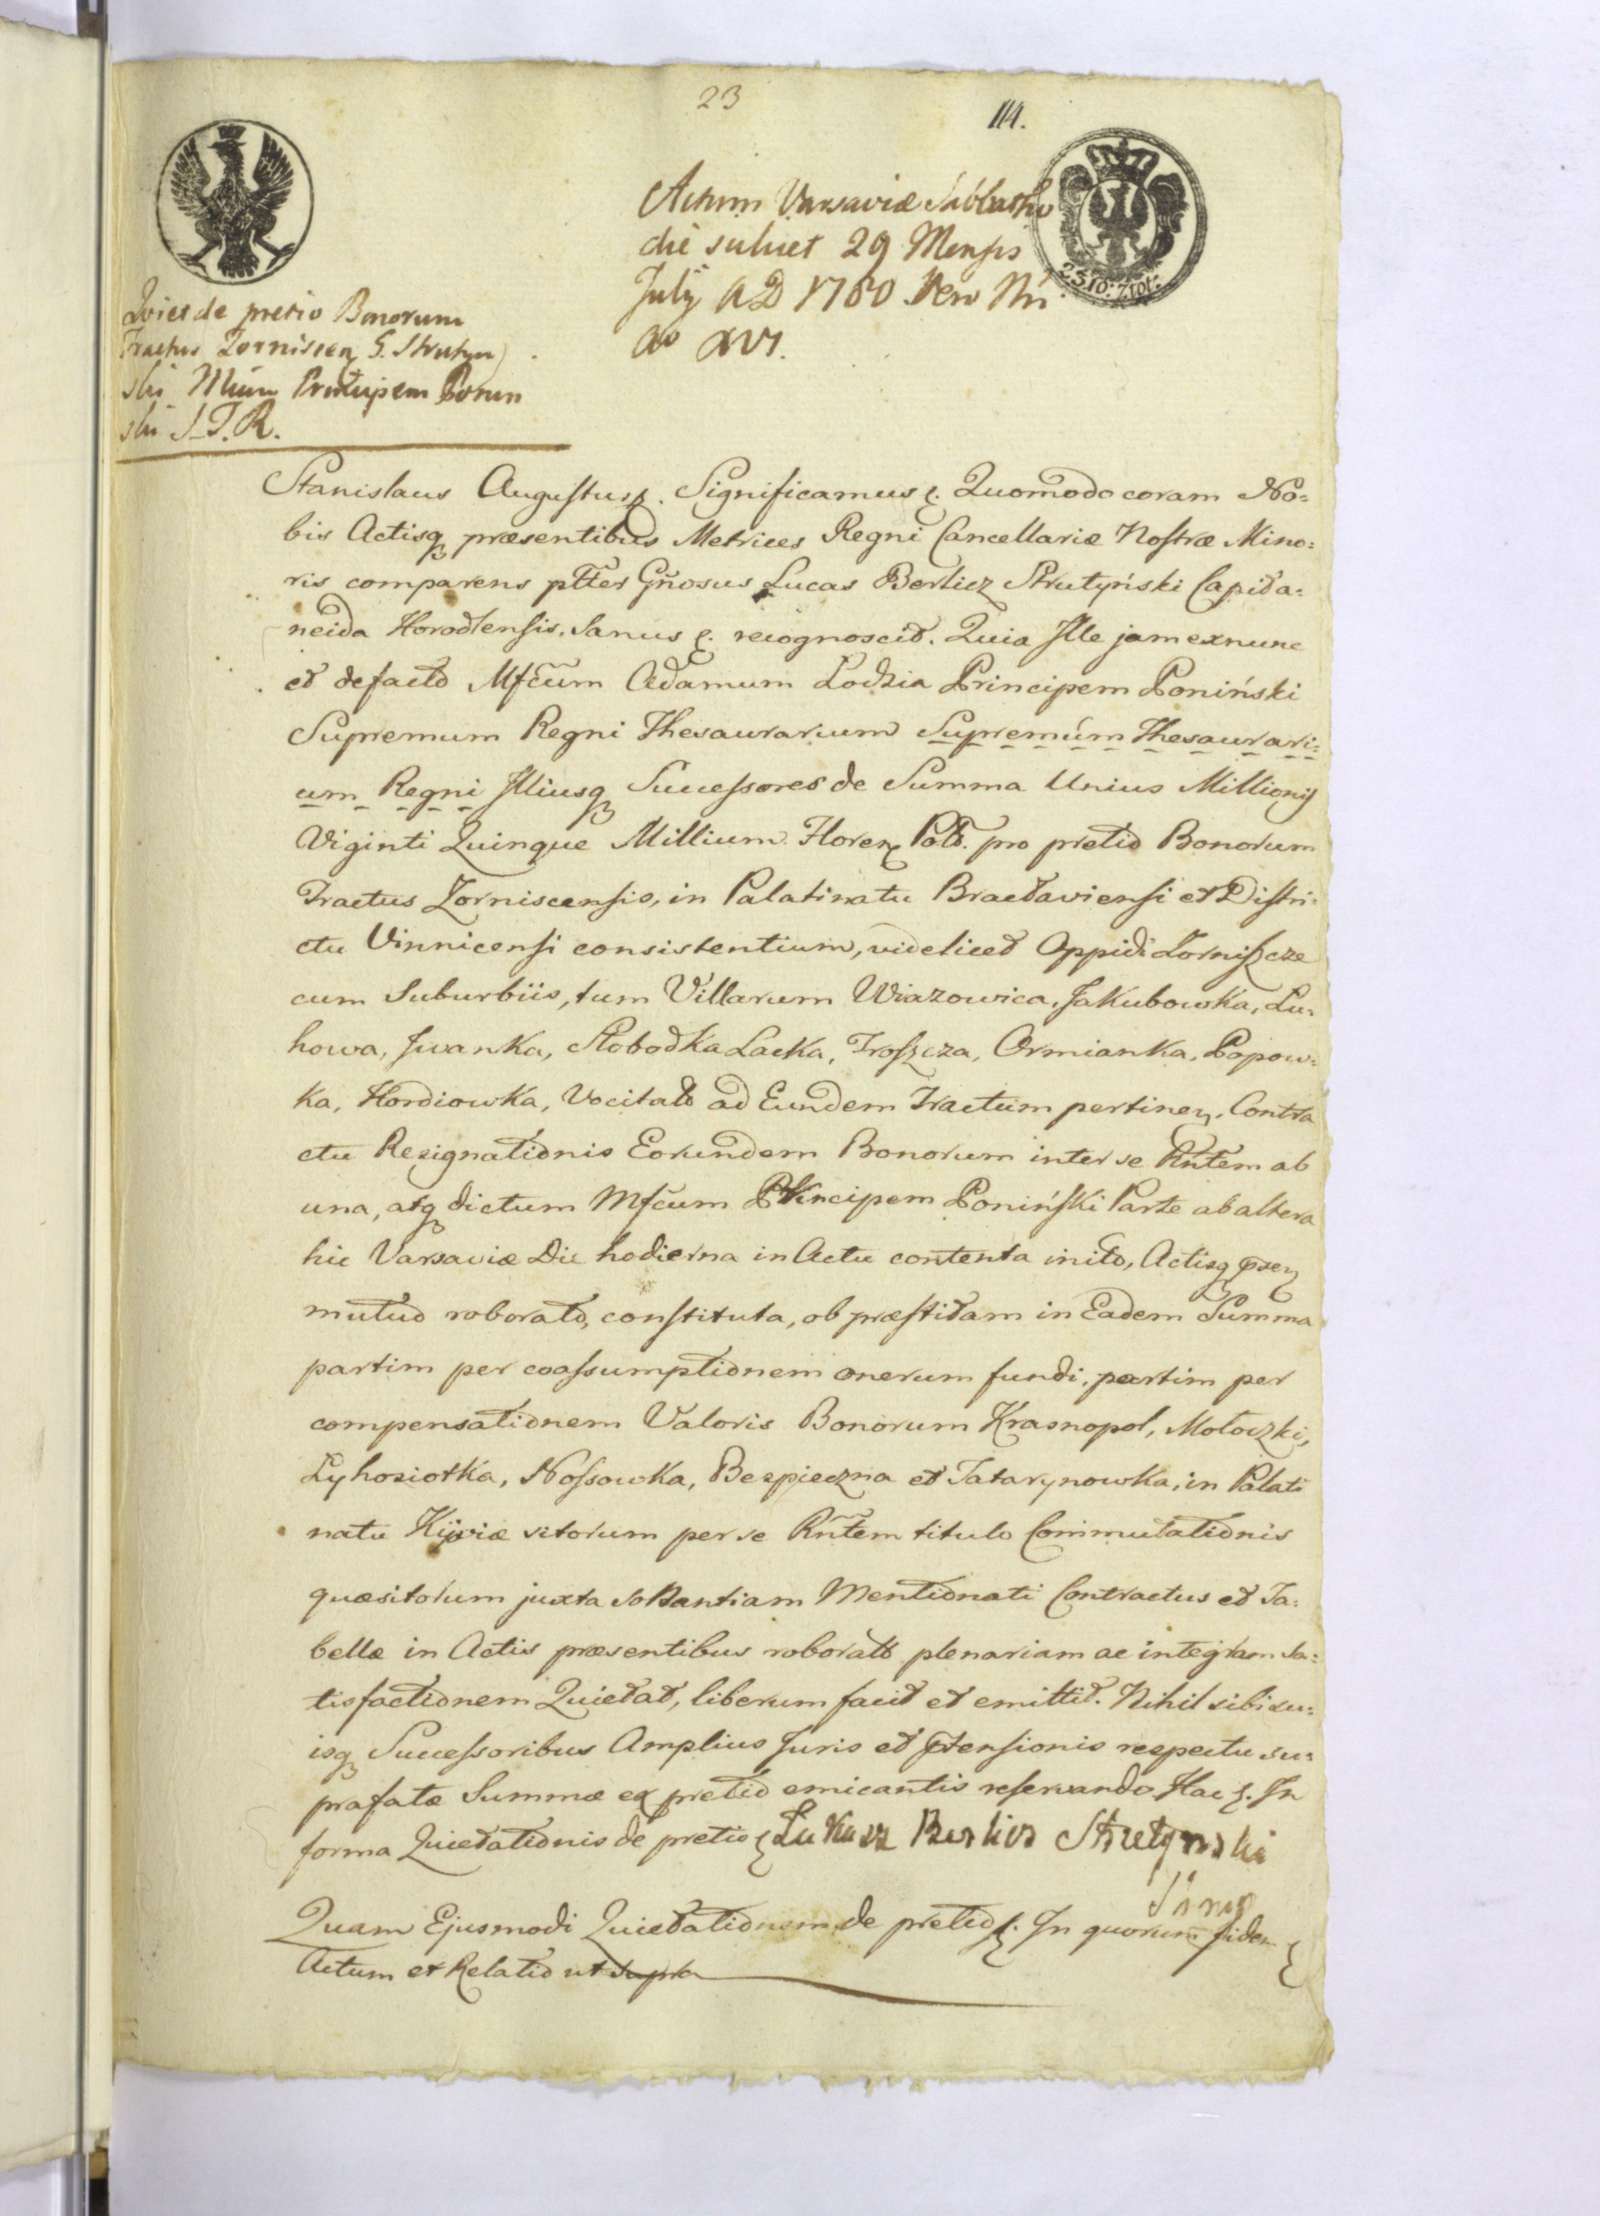 23
114.
Actum Varsaviæ Sabbatho
die scilicet 29 Mensis
July AD 1780 Rew Nri
Ao XVI.
25.10: Zlot:
Quiet de pretio Bonorum
Tractus Zorniscen G. Strutyn
ski Mcum Principem Ponin
ski S.T.R.
Stanislaus Augustus. Significamus. Quomodo coram No=
bis Actisq præsentibus Metrices Regni Cancellariæ Nostræ Mino=
ris comparens pltter Gñosus Lucas Berlicz Strutyński Capita=
neida Horodlensis. Sanus. recognoscit. Quia Ille jam exnunc
et defacto Mfcum Adamum Lodzia Principem Poniński
Supremum Regni Thesaurarium Supremum Thesaurari=
um Regni Illiusq Successores de Summa Unius Millionis
Viginti Quinque Millium Floren Poll. pro pretio Bonorum
Tractus Zorniscensis, in Palatinatu Braclaviensi et Distri=
ctu Vinnicensi consistentium, videlicet Oppidi Zorniszcze
cum Suburbiis, tum Villarum Wiazowica, Jakubowka, Lu=
howa, Iwanka, Słobodka Lacka, Troszcza, Ormianka, Popow=
ka, Hordiowka, Vocitat ad Eundem Tractum pertinen. Contra
ctu Resignationis Eorundem Bonorum inter se Rñtem ab
una, atq dictum Mfcum Principem Poniński Parte ab altera
hic Varsaviæ Die hodierna in Actu contenta inito, Actisq psen
mutuo roborato, constituta, ob præstitam in Eadem Summa
partim per coassumptionem onerum fundi, partim per
compensationem Valoris Bonorum Krasnopol, Mołoczki,
Lyhosiołka, Nossowka, Bezpieczna et Tatarynowka, in Palati
natu Kijoviæ sitorum per se Rñtem titulo Commutationis
quæsitorum juxta Mentionati Contractus et Ta=
bellæ in Actis præsentibus roborat plenariam ac integram Sa=
tisfactionem Quietat, liberum facit et emittit. Nihil sibi su=
isq Successoribus Amplius Juris et ptensionis respectu su=
prafatæ Summæ ex pretio emicantis reservando. Hac. In
forma Quietationis de pretio Łukasz Berlicz Strutynski
Quam Ejusmodi Quietationem de pretio. In quorum fidem
Actum et Relatio ut supra